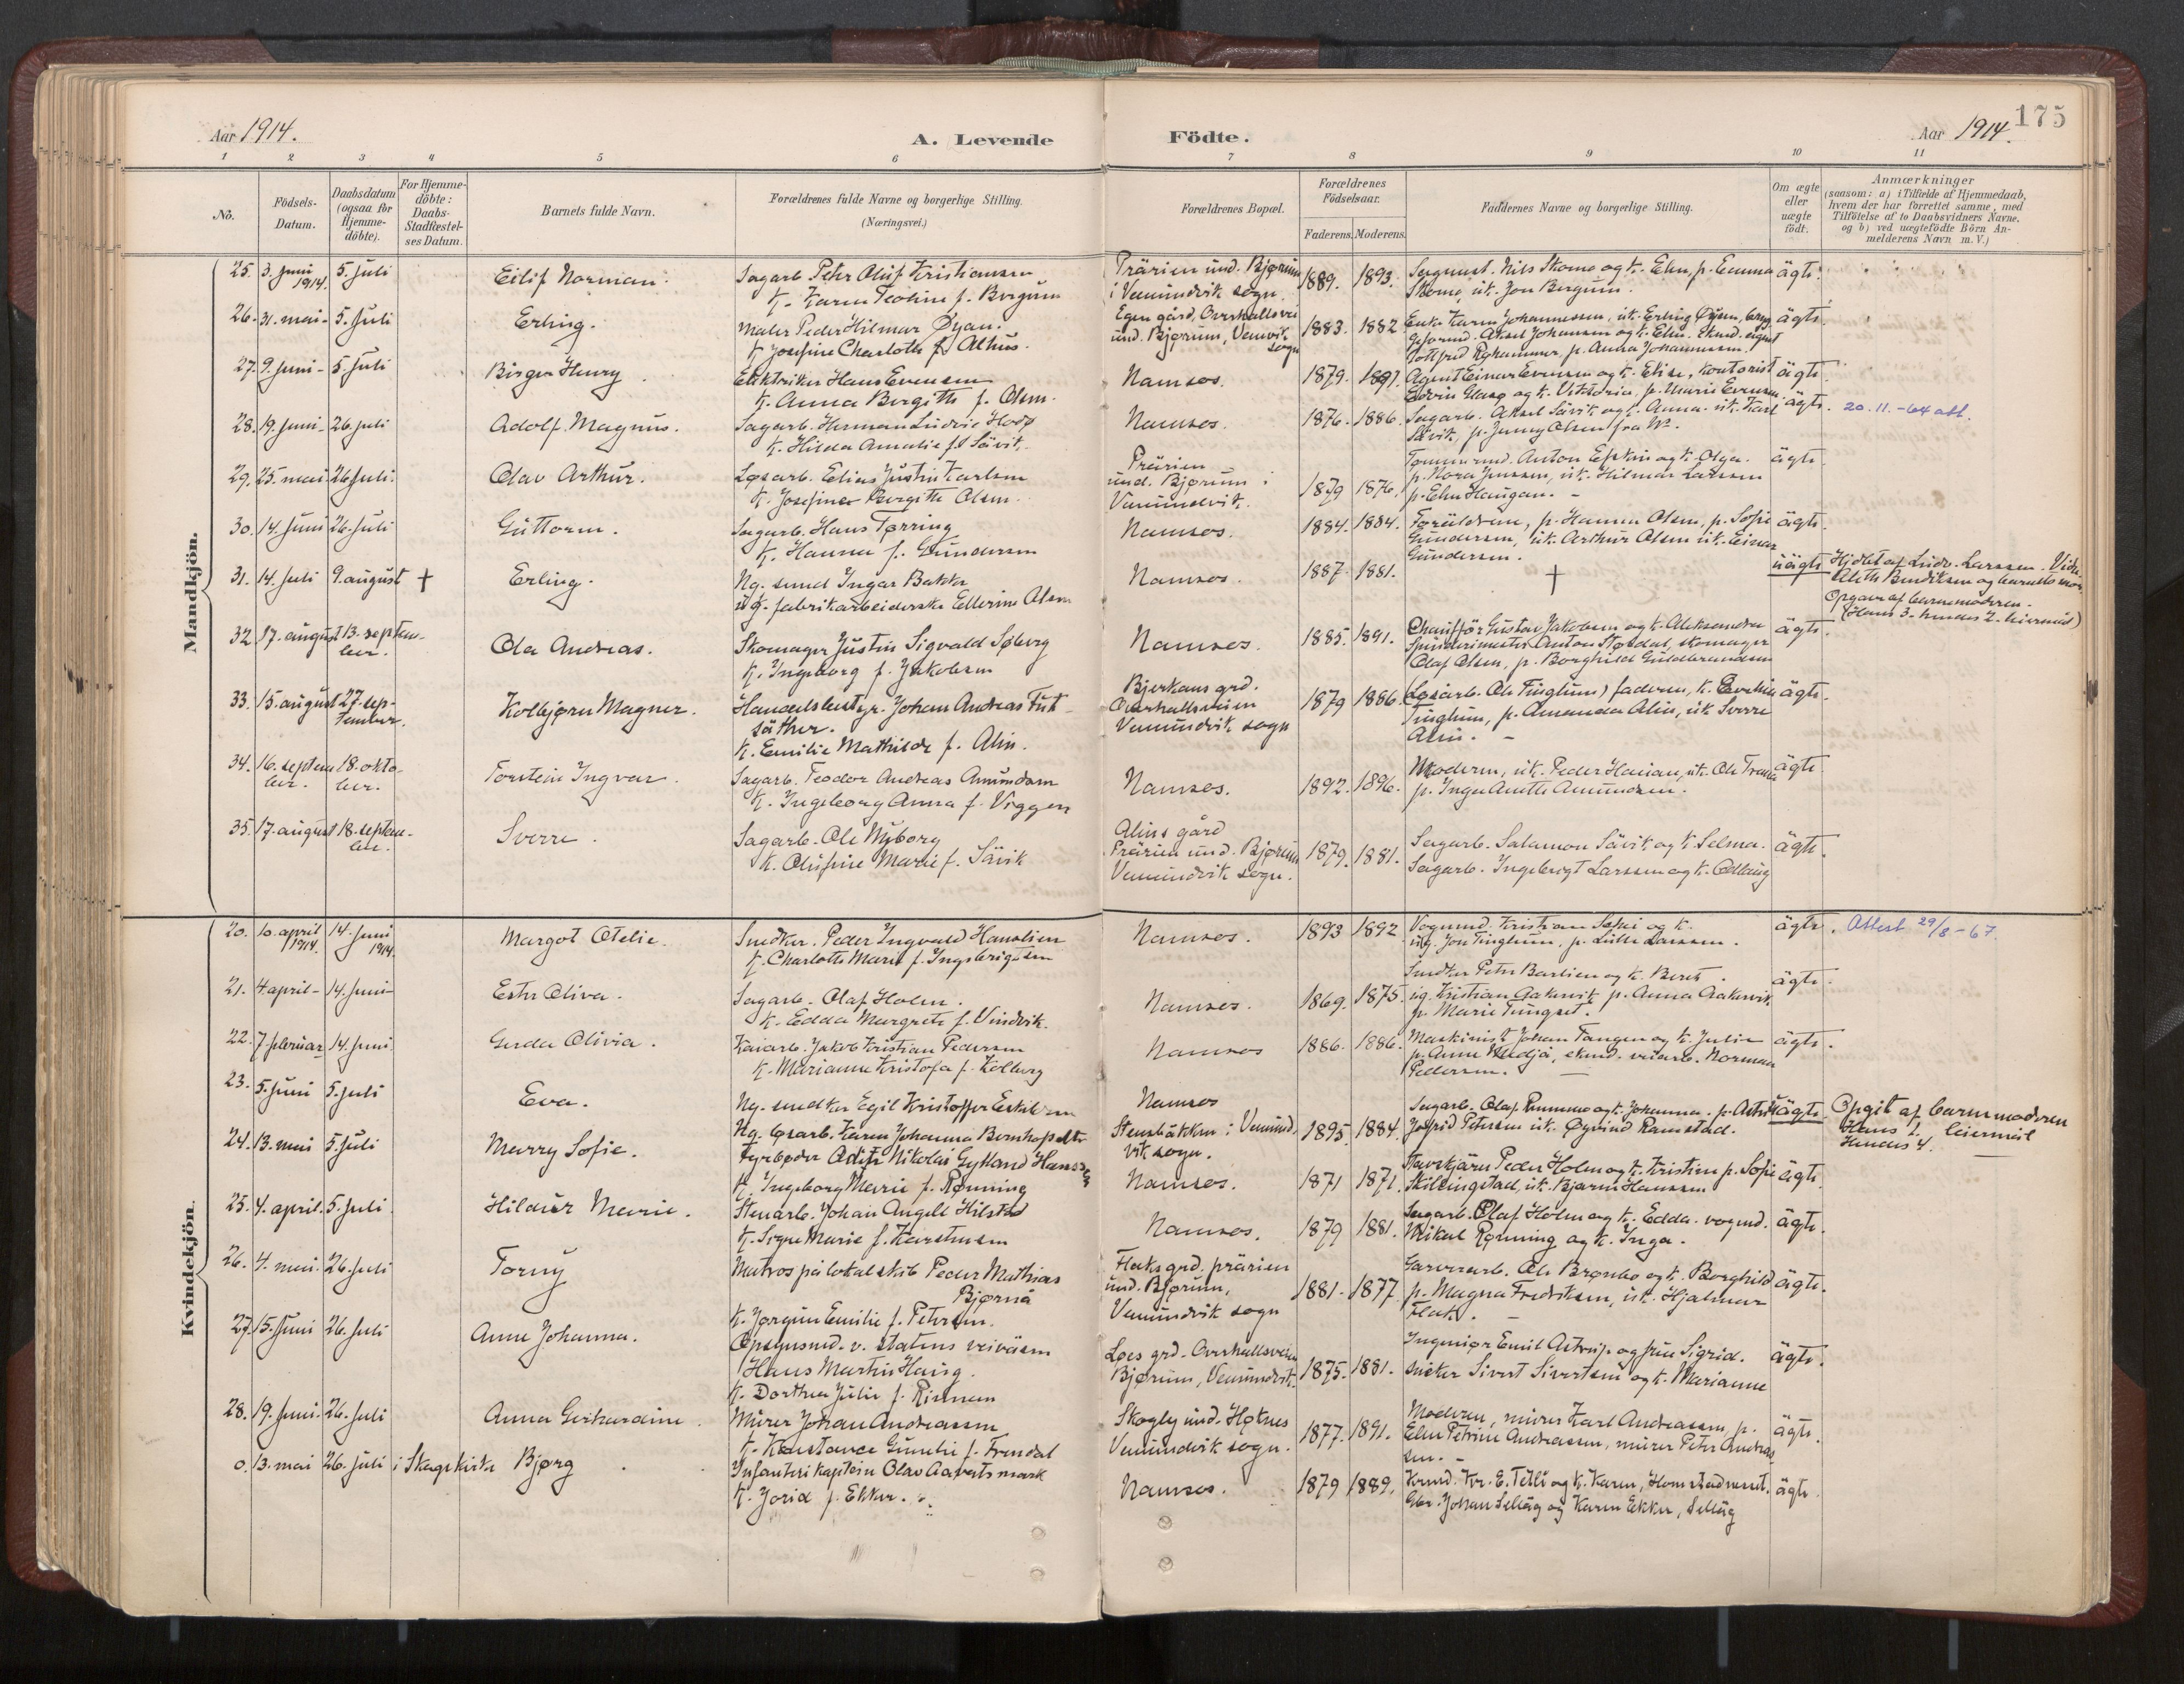 175
Aar 1914.
A. Levende
Födte.
Aar 1914.
1 2 3 4 5 6 7 8 9 10 11
No.
Födsels-Datum.
Daabsdatum (ogsaa for Hjemme-döbte).
For Hjemme-döbte: Daabs-Stadfæstel-ses Datum.
Barnets fulde Navn.
Forældrenes fulde Navne og borgerlige Stilling.
(Næringsvei.)
Forældrenes Bopæl.
Forældrenes Födselsaar.
Faderens. Moderens.
Faddernes Navne og borgerlige Stilling.
Om ægte eller uægte födt.
Anmærkninger
(saasom: a) i Tilfælde af Hjemmedaab, hvem der har forrettet samme, med Tilföielse af to Daabsvidners Navne, og b) ved uægtefödte Börn An-melderens Navn m. V.)
Mandkjön.
25. 3. juni 1914. 5. juli Eilif Norman. Sagarb. Peter Oluf Kristiansen
k. Karen Teoline f. Bergum
Prärien und. Bjørum i Vemundvik sogn. 1889. 1893.
Nils Skomo og k. Elen, p. Emma Skomo, uk. Jon Bergum. ägte.
26. 31. mai 5. juli Erling. Maler Peder Hilmar Øyan.
k. Josefine Charlotte f. Alhus.
Egen gård, Overhallsvei und. Bjørum, Vemvik sogn 1883. 1882
Enke Karen Johannessen, uk. Erling Øyen, Aksel Johansen og k. Elen. p. Anna Johannessen. ägte.
27. 9. juni 5. juli Birger Henry. Elektriker Hans Evensen
k. Anna Bergitte f. Olsen.
Namsos. 1879. 1891.
Agent Einar Evensen og k. Elise, kontorist Edvin Glasø og k. Viktoria, p. Marie Evensen. ägte.
28. 19. juni 26. juli Adolf Magnus. Sagarb. Herman Ludvic
k. Hilda Amalie f. Sävik.
Namsos. 1876. 1886.
Sagarb. Aksel Sävik og k. Anna. uk. Karl Sävik, p. Jenny Olsen fra Ns. ägte. 20.11.-64 att.
29. 25. mai 26. juli. Olav Arthur. Løsarb. Elias Justin Karlsen
k. Josefine Bergitte Olsen.
Prärien und. Bjørum i Vemundvik. 1879 1876.
Anton Espkin og k. Olga. p. Nora Jenssen, uk. Hilmar Larssen p. Elen Haugan. ägte.
30. 14. juni 26. juli Guttorm. Sagarb. Hans Tørring
k. Hanna f. Gundersen
Namsos. 1884. 1884.
Foräldrene, p. Hanna Olsen, p. Sofie Gundersen, uk. Arthur Olsen uk. Einar Gundersen. ägte.
31. 14. juli 9. august † Erling. Ng. smed Ingar Bakke
ug. fabrikarbeiderske Ellerine Olsen
Namsos. 1887. 1881. † uägte
Hjdbt af Ludv. Larssen. Vidn. Aleth Bendiksen og barnets mor.
Opgave af barnemoderen. (Hans 3. hendes 2. leiermål)
32. 17. august 13. september. Ola Andreas. Skomager Justin Sigvald Søberg
k. Ingeborg f. Jakobsen
Namsos. 1885. 1891.
Chauffør Gustav Jakobsen og k. Aleksandra Spinderimester Anton Størdal, skomager Olaf Olsen, p. Borghild Guldbrandsen ägte.
33. 15. august 27. september. Kolbjørn Magner. Handelsbestyr. Johan Andreas Fut-säther.
k. Emilie Mathilde f. Alin.
Bjerkans grd. Overhallsveien Vemundvik sogn 1879 1886.
(Løsarb. Ole Finghum) faderen, k. Finghum, p. Amanda Alin, uk. Sverre Alin. ägte.
34. 16. september. 18. oktober. Torstein Ingvar. Sagarb. Teodor Andreas Amundsen
k. Ingeborg Anna f. Viggen
Namsos. 1892. 1896.
Moderen, uk. Peder Hanian, uk. Ole Trana p. Inga Anette Amundsen. ägte
35. 17. august 18. september. Sverre. Sagarb. Ole Nyborg
k. Olufine Marie f. Sävik
Alins gård Prärien und. Bjørum Vemundvik sogn. 1879. 1881.
Sagarb. Salamon Sävik og k. Selma. Sagarb. Ingebrigt Larssen og k. Odlaug ägte.
Kvindekjön.
20. 10. april 1914. 14. juni 1914. Margot Otelie. Snedker. Peder Ingvald Hanslien
k. Charlotte Marie f. Ingebrigtsen
Namsos. 1893 1892
Vognmd. Kristian Selni og k. ug. Jon Finghum, p. Lulla Larssen. ägte. Attest 29/8-67.
21. 4. april 14. juni Ester Oliva. Sagarb. Olaf Holm.
k. Edda Margrete f. Vindvik.
Namsos. 1869. 1875.
Snedker Peter Barlien og k. Beret. ug. Kristian Gakervik p. Anna Gakervik p. Marie Tungset. ägte.
22. 7. februar 14. juni. Gerda Olivia. Kaiarb. Jakob Kristian Pedersen
k. Marianne Kristofa f. Kolberg
Namsos 1886. 1886.
Maskinist Johan Tangen og k. Julie p. Anne Medjå, ekspd. veiarb. Norman Pedersen. ägte.
23. 5. juni 5. juli Eva. Ng. snedker Egil Kristoffer
Ng. løsarb. Karen Johanna
Namsos Stensbäkken i Vemundvik sogn. 1895. 1884.
Sagarb. Olaf Rummo og k. Johanna. p. Astrid Petersen uk. Øyvind Ramstad. uägte.
Opgit af barnemoderen Hans 1. Hendes 4. leiermål
24. 13. mai 5. juli Merry Sofie. Fyrbøder Nikolai Gylland Hanssen
k. Ingeborg Marie f. Rønning
Namsos. 1871 1871.
Peder Holm og k. Kristine p. Sofie Skilsingstad, uk. Bjarne Hanssen ägte.
25. 4. april. 5. juli Hildur Marie. Stenarb. Johan Angell Hilstad
k. Signe Marie f. Karstensen
Namsos. 1879 1881.
Sagarb. Olaf Holm og k. Edda. vognmd. Mikal Rønning og k. Inga. ägte.
26. 4. mai. 26. juli Torny Matros på lokalskib Peder Mathias Bjørnå
k. Jørgine Emilie f. Petersen.
Flaks grd. prärien und. Bjørum, Vemundvik sogn 1881. 1877
Garverarb. Ole Brønbo og k. Borghild p. Magna Fredriksen, uk. Hjalmar Flak. ägte.
27. 15. juni 26. juli Anne Johanna. Opsynsmd. v. statens veiväsen Hans Martin Haug.
k. Dorthea Julie f. Rinnan
Løes grd. Overhallsveien Bjørum, Vemundvik. 1875. 1881.
Ingeniør Emil Astrup og frue Sigrid. Sivert Sivertsen og k. Marianne ägte.
28. 19. juni. 26. juli Anna Gerhardine. Murer Johan Andreassen
k. Konstance Gunelie f. Frendal
Skogly und. Høknes Vemundvik sogn. 1877. 1891.
Moderen, murer Karl Andreassen, p. Elen Petrine Andreassen, murer Peter Andreassen. ägte.
0. 13. mai 26. juli i Skagekirke Bjørg Infanterikaptein Olav Aavatsmark
k. Jorid f. Ekker.
Namsos. 1879 1889.
Krmd. Kr. E. Telli og k. Karen, Homstadneset. Gbr. Johan Selläg og Karen Ekker, Selläg ägte.